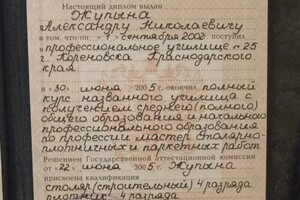 Настоящий диплом выдан
Жупына
Александру Николаевичу
в том, что он « 1 » сентября 2002 поступил
в профессиональное училище № 25
г. Кореновска Краснодарского
края
и « 30 » июня 2005 г. окончил полный
курс названного училища с
получением среднего (полного)
общего образования и начального
профессионального образования
по профессии мастер столярно-
плотничных и паркетных работ
Решением Государственной аттестационной комиссии
от « 22 » июня 2005 г. Жупына
присвоена квалификация
столяр (строительный) 4 разряда
плотник 4 разряда